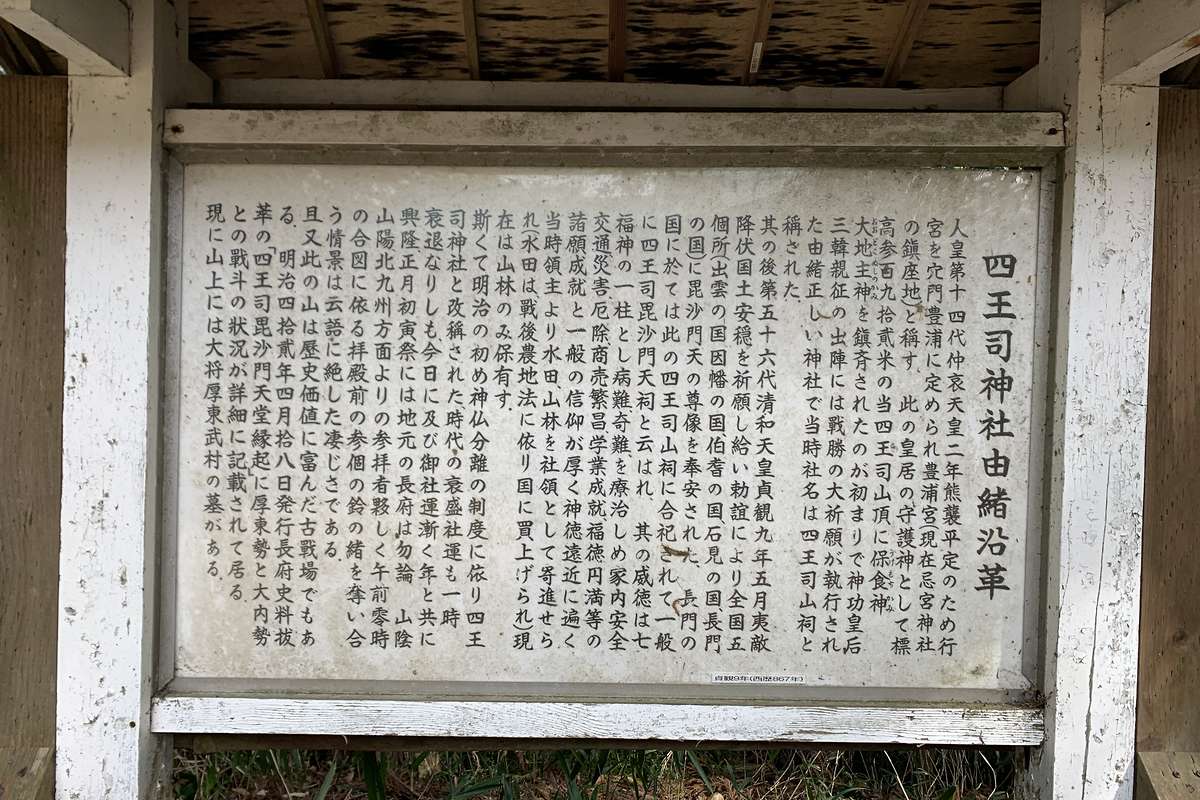 四王司神社由緒沿革
人皇第十四代仲哀天皇二年熊襲平定のため行
宮を穴門豊浦に定められ豊浦宮(現在忌宮神社
の鎮座地)と稱す、此の皇居の守護神として標
高参百九拾貳米の当四王司山頂に保食神
大地主神を鎮斉されたのが初まりで神功皇后
三韓親征の出陣には戰勝の大祈願が執行され
た由緒正しい神社で当時社名は四王司山祠と
稱された、
其の後第五十六代清和天皇貞観九年五月夷敵
降伏国土安穏を祈願し給い勅諠により全国五
個所(出雲の国、因幡の国、伯耆の国、石見の国、長門
の国)に毘沙門天の尊像を奉安された、長門の
国に於ては此の四王司山祠に合祀されて一般
に四王司毘沙門天祠と云はれ、其の威徳は七
福神の一柱とし病難奇難を療治しめ家内安全
交通災害厄除商売繁昌学業成就、福徳円満等の
諸願成就と一般の信仰が厚く神徳遠近に遍く
当時領主より水田山林を社領として寄進せら
れ(水田は戰後農地法に依り国に買上げられ)現
在は山林のみ保有す、
斯くて明治の初め神仏分離の制度に依り四王
司神社と改稱された時代の衰盛社運も一時
衰退なりしも、今日に及び御社運漸く年と共に
興隆正月初寅祭には地元の長府は勿論、山陰
山陽北九州方面よりの参拝者夥しく午前零時
の合図に依る拝殿前の参個の鈴の緒を奪い合
う情景は云語に絶した凄じさである、
且又此の山は歴史価値に富んだ古戦場でもあ
る、明治四拾貳年四月拾八日発行長府史料抜
萃の「四王司毘沙門天堂縁起に厚東勢と大内勢
との戰斗の狀況が詳細に記載されて居る
現に山上には大将厚東武村の墓がある、
貞観9年(西歴867年)